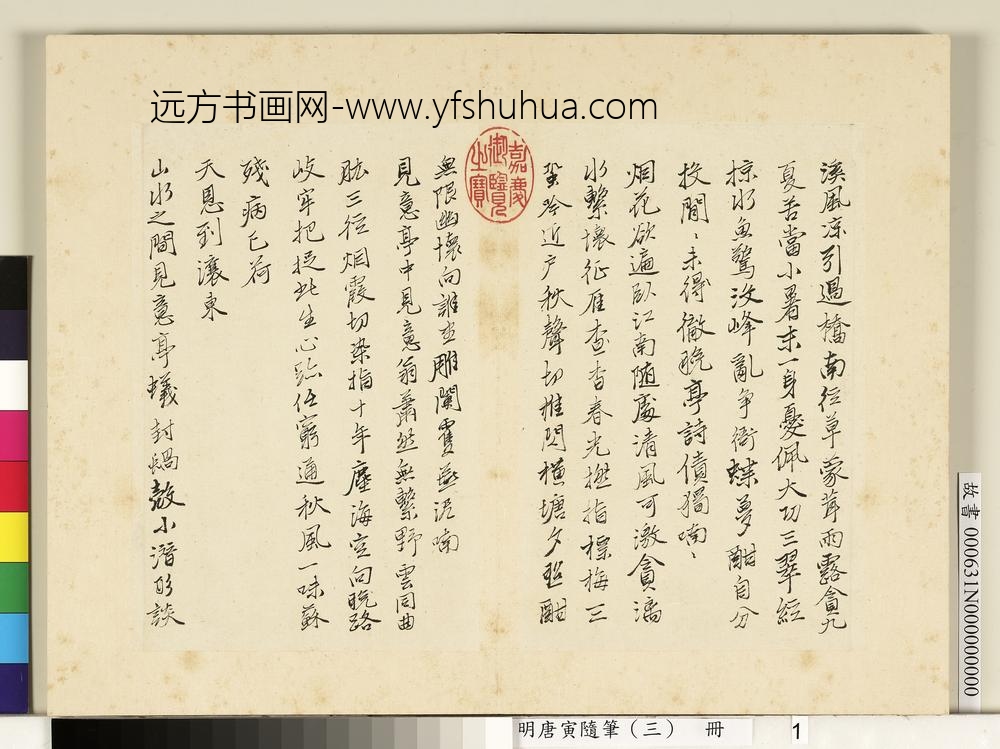 远方书画网-www.yfshuhua.com
嘉慶御覽之寶
溪風凉引過橋南徑草蒙茸雨露貪九
夏苦當小暑末一身憂佩大功三翠經
掠水魚驚汶峰亂爭衙蝶夢酣自分
投閒、未得徹晚亭詩債獨喃、
烟花欲遍臥江南隨處清風可激貪漓
水繫懷征雁查杳春光撚指標梅三
蛩吟近户秋聲切推閃橫塘夕照酣
無限幽懷向誰在雕闌雙燕泥喃
見意亭中見意翁蕭然無繫野雲同曲
肱三徑烟霞切染指十年塵海空向晚路
岐牢把捉此生心跡任窮通秋風一味蘇
殘病已荷
天恩到瀼東
山水之間見意亭蟻封蝸敖小潛形談
故書 000631N000000000
明唐寅隨筆（三） 冊 1